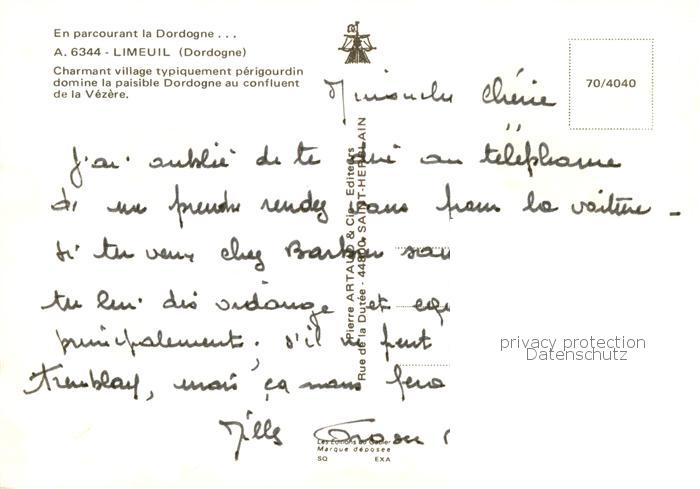 En parcourant la Dordogne . . .
A. 6344 - LIMEUIL (Dordogne)
Charmant village typiquement périgourdin
domine la paisible Dordogne au confluent
de la Vézère.
70/4040
Minouche chérie
J'ai oublié de te au téléphone
de me prendre rendez vous pour la voiture -
si tu veux chez
tu lui dis vidange et
principalement, s'il ne peut
Tremblay, mais ça nous fera
Mille
Pierre ARTAUD & Cie - Editeurs
Rue de la Dutée - 44800 SAINT-HERBLAIN
privacy protection
Datenschutz
Les Editions du Gabier
Marque déposée
SQ EXA